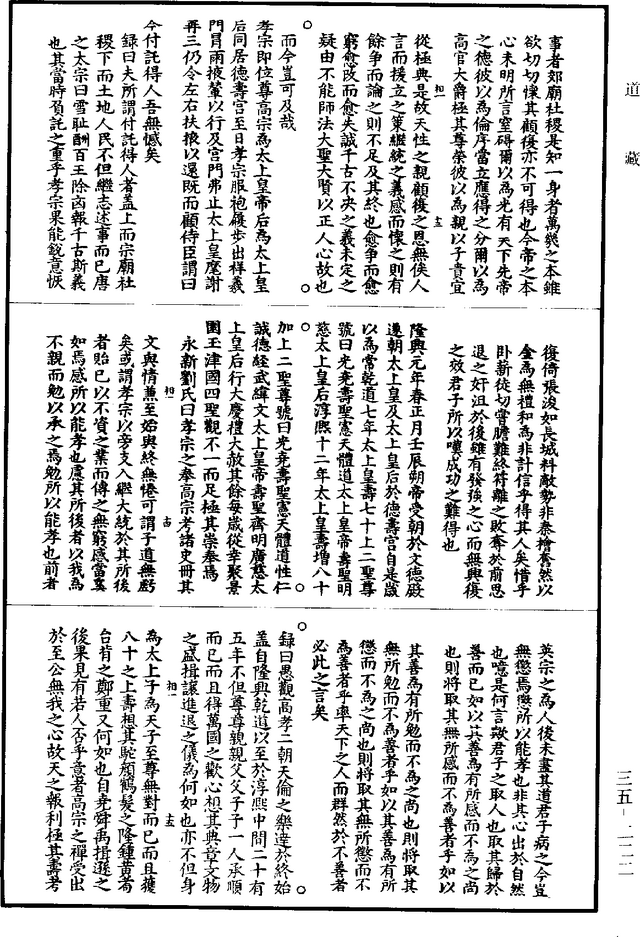 道藏
事者郊廟社稷是知一身者萬幾之本雖
欲切切懷其顧復亦不可得也今帝之本
心未明所言窒碍爾以為光有天下先帝
之德彼以為倫序當立應得之分爾以為
高官大爵極其尊榮彼以為親以子貴宜
從極典是故天性之親顧復之恩無俟人
言而援立之策繼統之義感而懷之則有
餘爭而論之則不足及其終也愈爭而愈
窮愈改而愈失誠千古不決之義未定之
疑由不能師法大聖大賢以正人心故也
而今豈可及哉
孝宗即位尊高宗為太上皇帝后為太上皇
后同居德壽宮至日孝宗服袍履步出祥羲
門冒雨掖輦以行及宮門弗止太上皇麾謝
再三仍令左右扶掖以還既而顧侍臣謂曰
今付託得人吾無憾矣
錄曰夫所謂付託得人者蓋上而宗廟社
稷下而土地人民不但繼志述事而已唐
之太宗曰雪恥酬百王除凶報千古斯義
也其當時負託之重乎孝宗果能銳意恢
復倚張浚如長城料敵勢非秦檜奮然以
金為無禮和為非計信乎得其人矣惜乎
卧薪徒切嘗膽難終符離之敗奪於前思
退之奸沮於後雖有發強之心而無興復
之效君子所以嘆成功之難得也
隆興元年春正月壬辰朔帝受朝於文德殿
遷朝太上皇及太上皇后於德壽宮自是歲
以為常乾道七年太上皇壽七十上二聖尊
號曰光堯壽聖憲天體道太上皇帝壽聖明
慈太上皇后淳熙十二年太上皇壽增八十
加上二聖尊號曰光堯壽聖憲天體道性仁
誠德經武緯文太上皇帝壽聖齊明廣慈太
上皇后行大慶禮大赦其餘每歲從幸聚景
園玉津園四聖觀不一而足極其崇奉焉
永新劉氏曰孝宗之奉高宗考諸史冊其
文與情兼至始與終無倦可謂子道無虧
矣或謂孝宗以旁支入繼大統於其所後
者貽已以不貲之業而傳之無窮感當奚
如焉感所以能孝也慮其所後者以我為
不親而勉以承之焉勉所以能孝也前者
英宗之為人後未盡其道君子病之今豈
無懲焉懲所以能孝也非其心出於自然
也噫是何言歟君子之取人也取其歸於
善而已如以其善為有所感而不為之尚
也則將取其無所感而不為善者乎如以
其善為有所勉而不為之尚也則將取其
無所勉而不為善者乎如以其善為有所
懲而不為之尚也則將取其無所懲而不
為善者乎率天下之人而群然於不善者
必此之言矣
錄曰愚觀高孝二朝天倫之樂達於終始
蓋自隆興乾道以至於淳熙中間二十有
五年不但尊尊親親父父子子一人承順
而已而且得萬國之歡心想其典章文物
之盛揖讓進退之儀為何如也亦不但身
為太上子為天子至尊無對而已而且獲
八十之上壽想其駝顏鶴髮之隆鍾黃耇
台背之鄭重又何如也自堯舜禹揖遜之
後果見有若人否乎意者高宗之禪受出
於至公無我之心故天之報利極其壽考
三五-一二二二